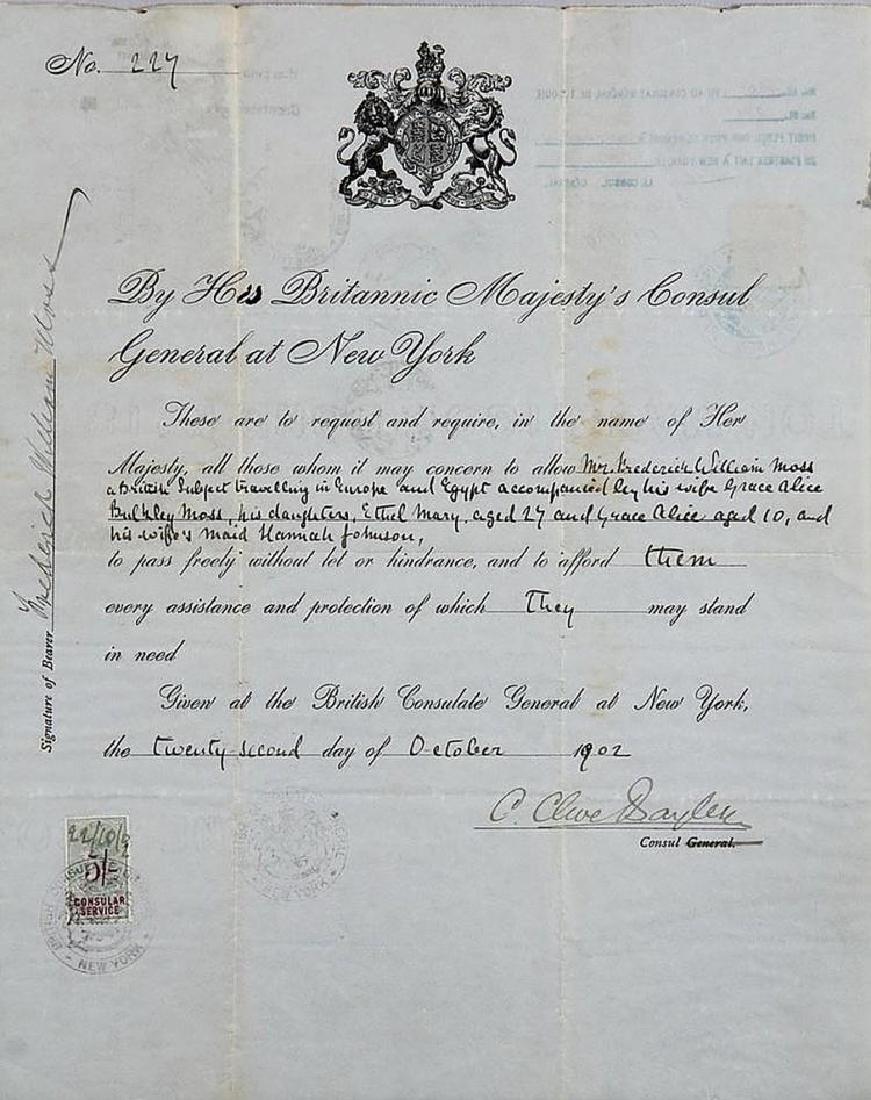 No. 227
By His Britannic Majesty's Consul
General at New York
These are to request and require, in the name of Her
Majesty, all those whom it may concern to allow Mr. Frederick William Moss
a British Subject travelling in Europe and Egypt accompanied by his wife Grace Alice
Bulkley Moss, his daughters, Ethel Mary, aged 27 and Grace Alice aged 10, and
his wife's maid Hannah Johnson,
to pass freely without let or hindrance, and to afford them
every assistance and protection of which they may stand
in need
Given at the British Consulate General at New York,
the twenty-second day of October 1902
C. Clive Bayley
Consul General.
Signature of Bearer Frederick William Moss
22/10/2
5/-
CONSULAR
SERVICE
BRITISH CONSULATE GENERAL
NEW YORK
NEW YORK